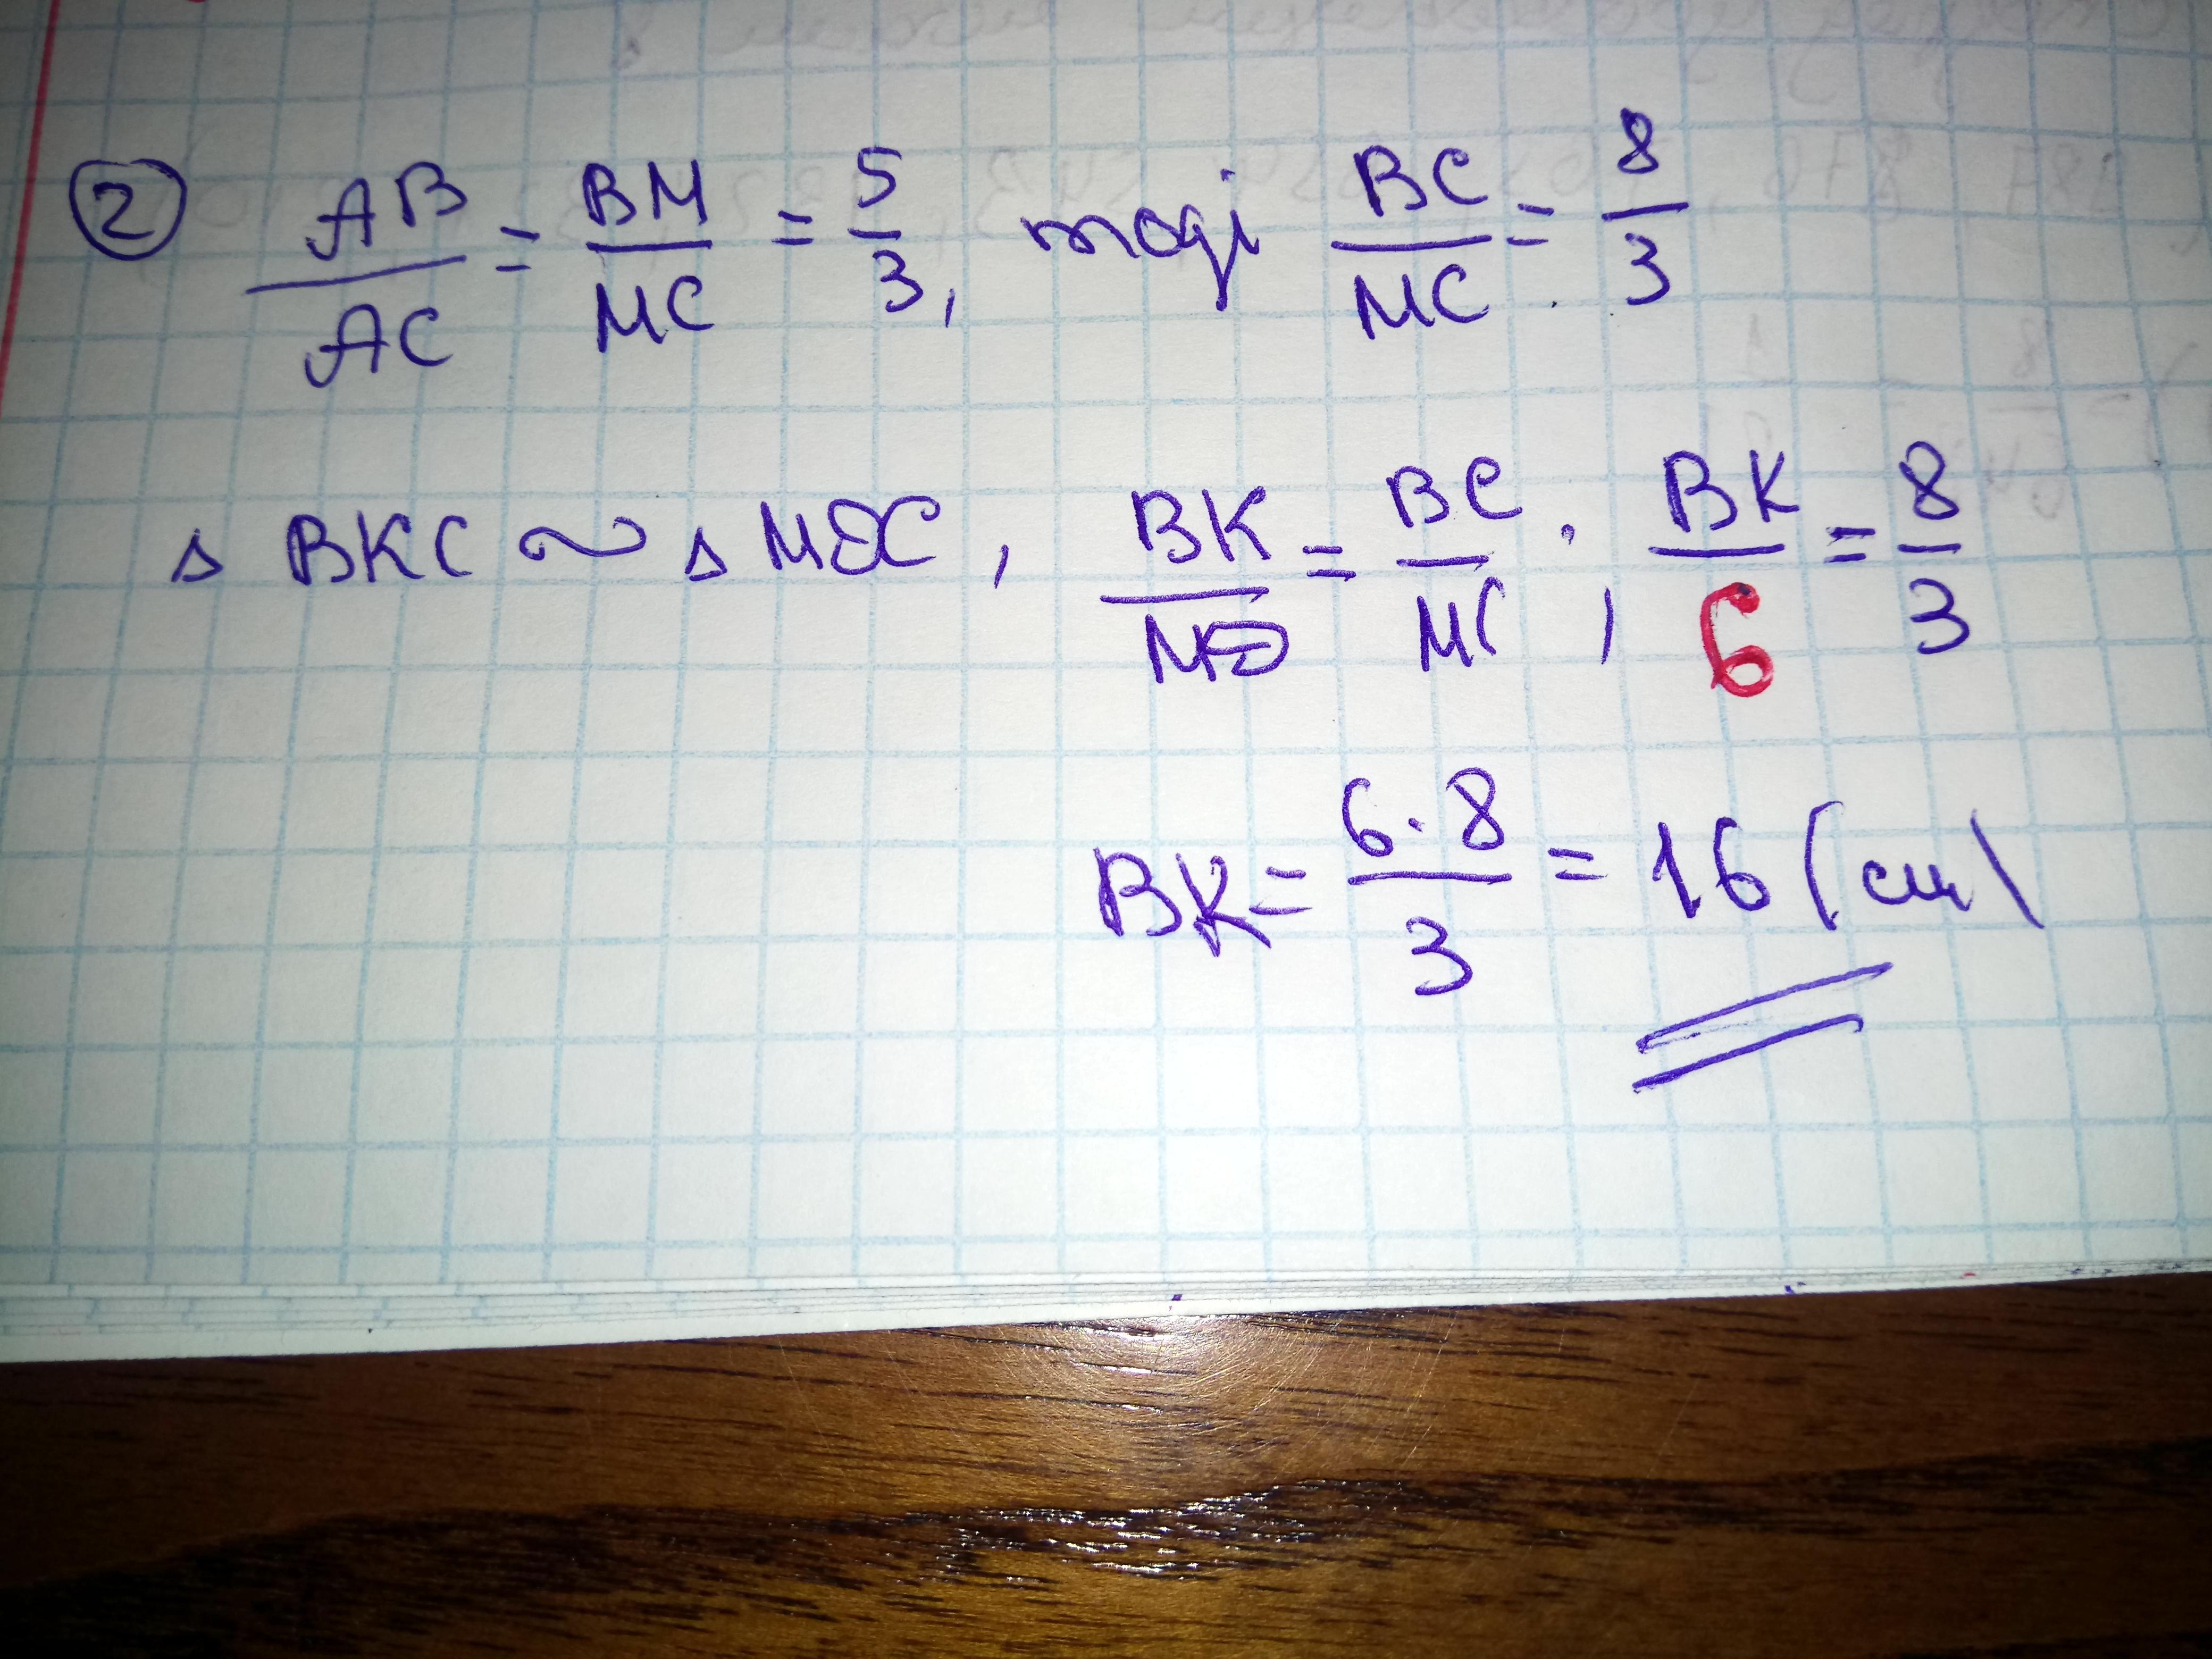 ② AB/AC = BM/MC = 5/3, тоді BC/MC = 8/3
△ BKC ~ △ MDC, BK/MD = BC/MC; BK/6 = 8/3
BK = 6·8/3 = 16 (см)